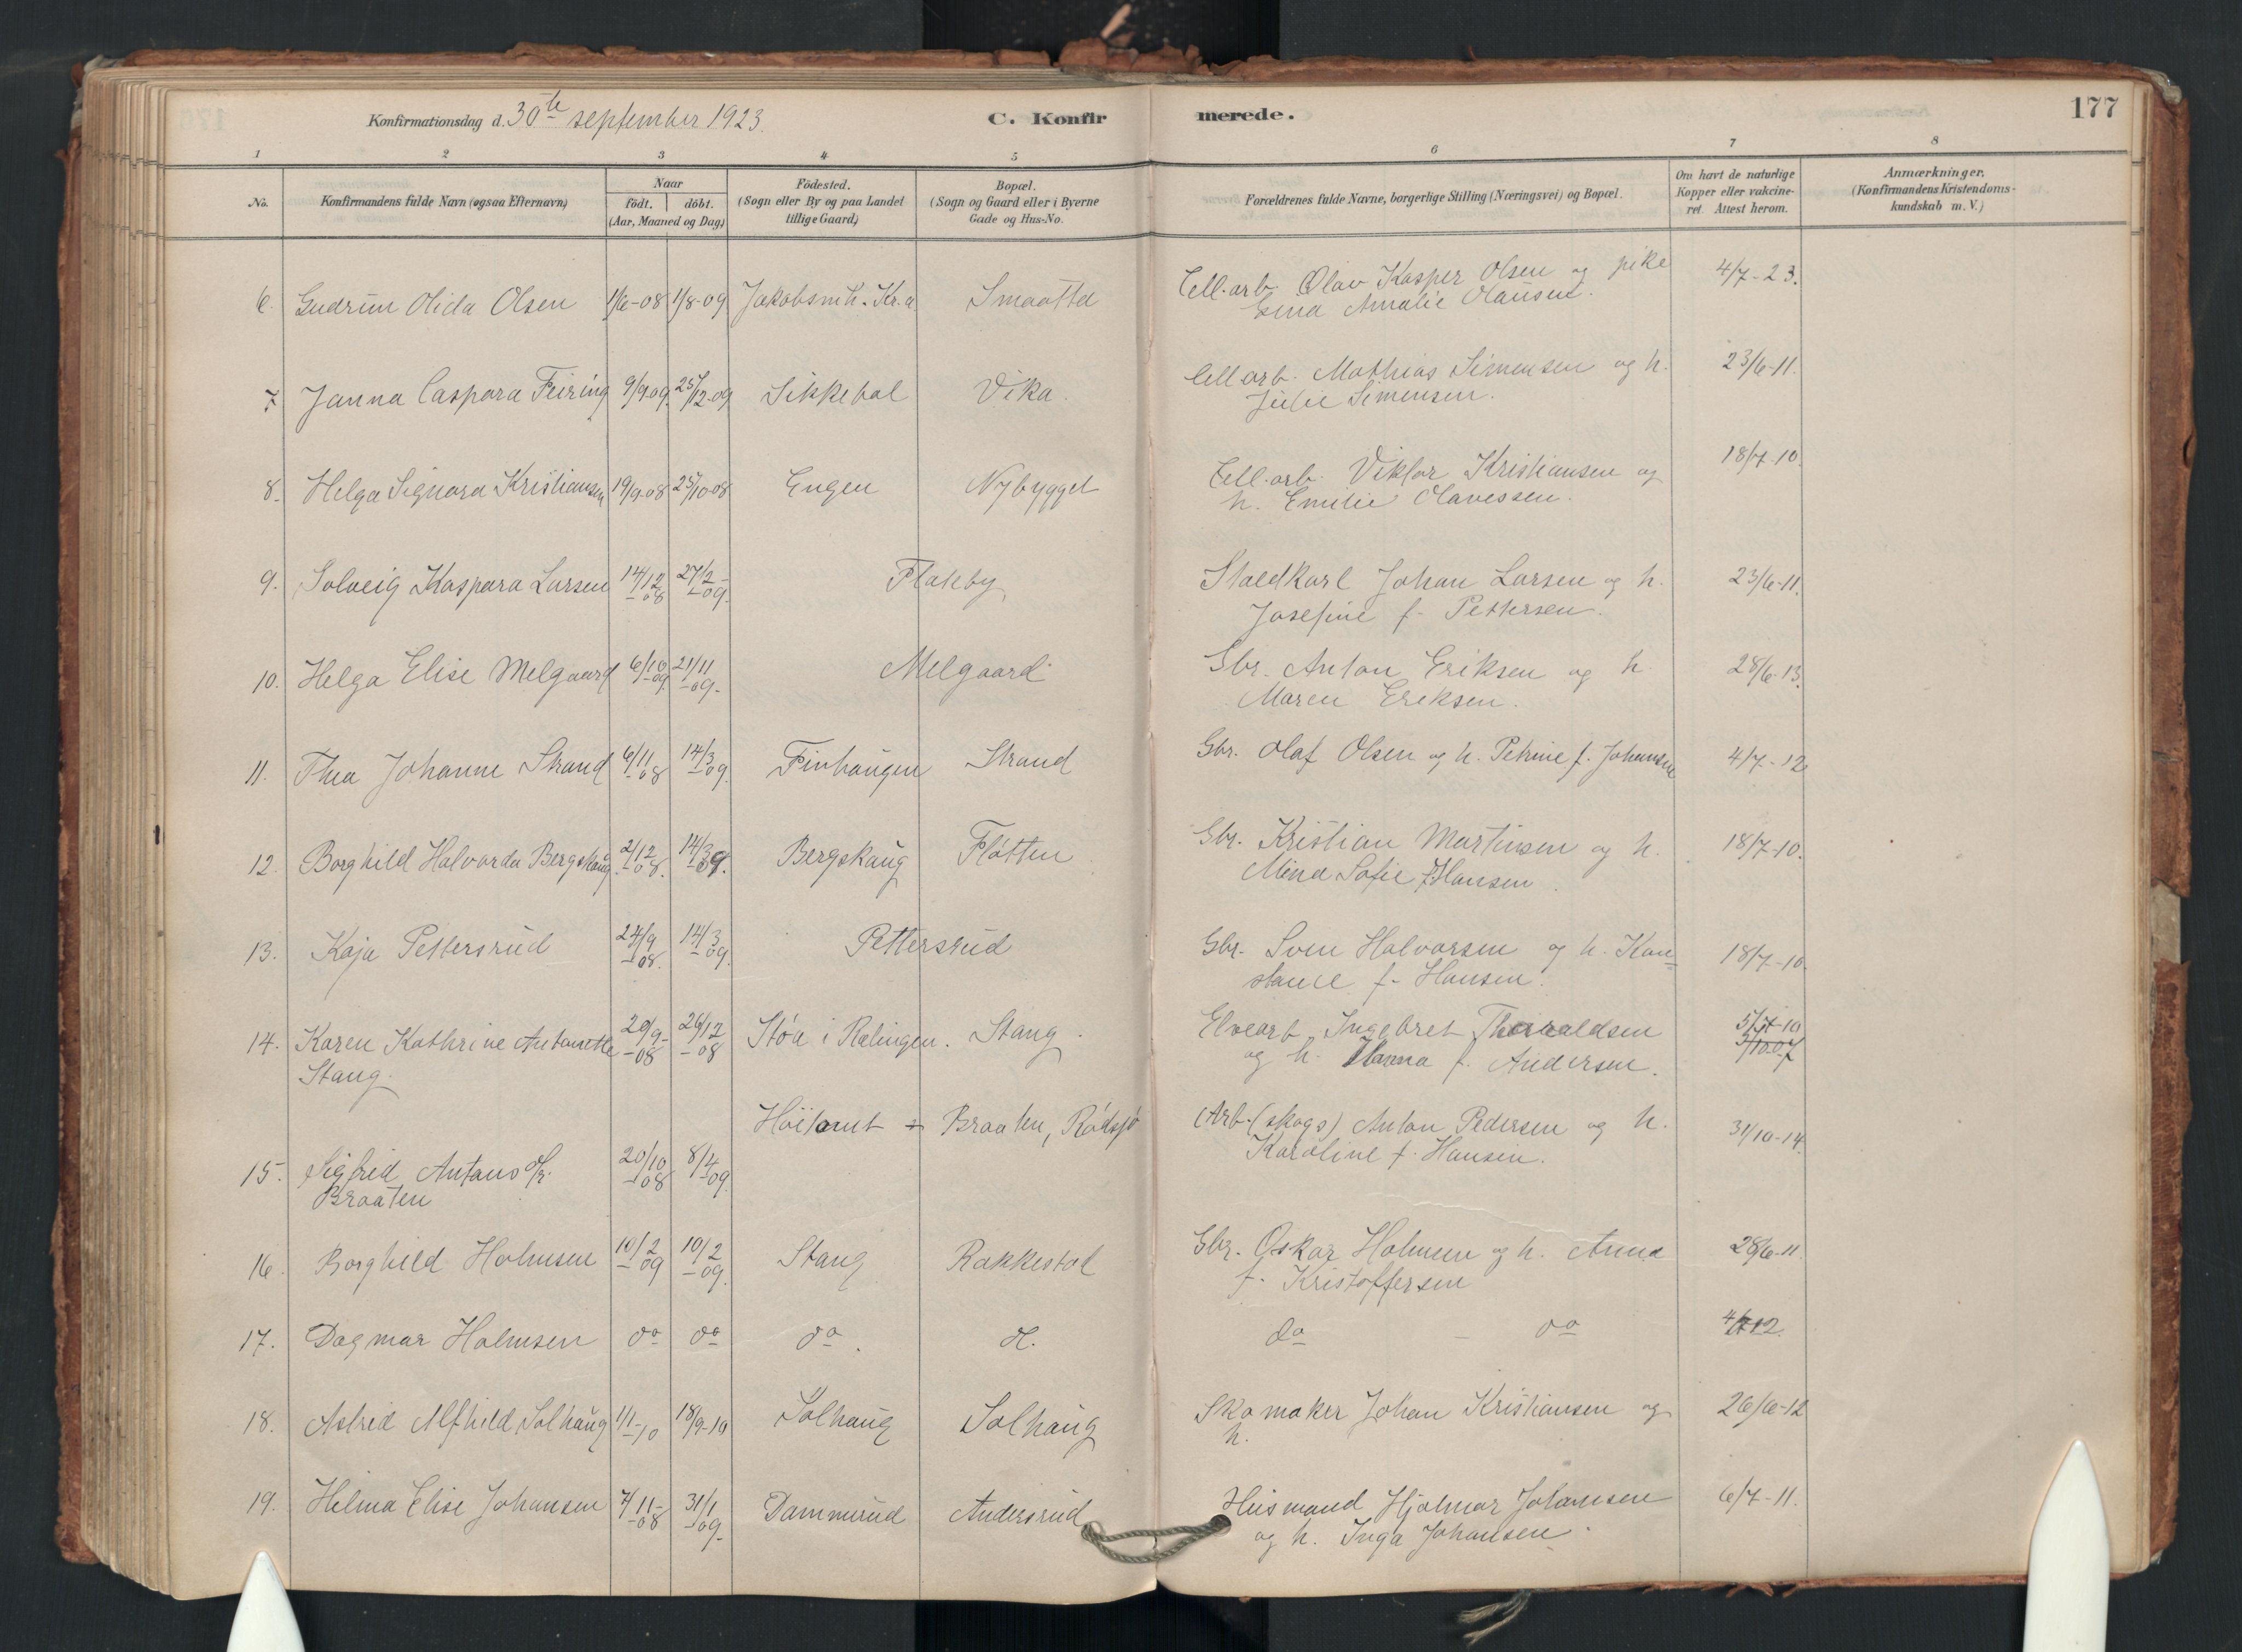 Konfirmationsdag d. 30te september 1923. C. Konfirmerede. 177
1 2 3 4 5 6 7 8
No. Konfirmandens fulde Navn (ogsaa Efternavn) Naar födt. döbt. (Aar, Maaned og Dag) Födested. (Sogn eller By og paa Landet tillige Gaard) Bopæl. (Sogn og Gaard eller i Byerne Gade og Hus-No. Forældrenes fulde Navne, borgerlige Stilling (Næringsvei) og Bopæl. Om havt de naturlige Kopper eller vakcineret. Attest herom. Anmærkninger. (Konfirmandens Kristendomskundskab m. V.)
6. Gudrun Olida Olsen 1/6-08 1/8-09 Jakobsm k. Kr.a Smaatta Cell.arb. Olav Kasper Olsen og pike 4/7-23.
Ema Amalie Olausen.
7. Janna Caspara Feiring 9/9-09 25/12-09 Sikkebøl Vika. Cell.arb. Mathias Simensen og h. 23/6-11.
Julie Simensen.
8. Helga Signora Kristiansen 19/9-08 25/10-08 Engen Nybygget Cell.arb. Viktor Kristiansen og 18/7-10.
h. Emilie Olavessen.
9. Solveig Kaspara Larsen 14/12-08 27/2-09. Flakby Staldkarl Johan Larsen og h. 23/6-11.
Josefine f. Pettersen.
10. Helga Elise Melgaard 6/10-09 21/11-09. Melgaard Gbr. Anton Eriksen og h 28/6-13.
Maren Eriksen.
11. Thea Johanne Strand 6/11-08 14/3-09. Finhaugen Strand Gbr. Olaf Olsen og h. Petrine f. Johansen 4/7-12
12. Borghild Halvarda Bergskaug 2/12-08. 14/3-09. Bergskaug Fløtten Gbr. Kristian Martinsen og h. 18/7-10.
Mina Sofie f. Hansen.
13. Kaja Pettersrud 24/9-08. 14/3-09. Pettersrud Gbr. Sven Halvorsen og h. Kon-
stance f. Hansen. 18/7-10.
14. Karen Kathrine Antonette 20/9-08 26/12-08 Støa i Rælingen. Stang. Elvearb. Ingebret Thorvaldsen 5/7-10
Stang. og h. Hanna f. Andersen. 3/10.07
Høilamt Braaten, Rødsjø Arb. (skogs) Anton Pedersen og h. 31/10-14.
15. Sigfrid Antons d/r. 20/10-08 8/4-09. Karoline f. Hansen.
Braaten
16. Borghild Holmsen 10/2-09 10/2-09. Stang Rakkestad Gbr. Oskar Holmsen og h. Anna 28/6-11.
f. Kristoffersen
17. Dagmar Holmsen do do do. do do 4/7 12.
18. Astrid Alfhild Solhaug 1/1-10 18/9-10 Solhaug Solhaug Skomaker Johan Kristiansen og 26/6-12
h.
19. Helma Elise Johansen 7/11-08 31/1-09. Dammerud Andersrud Husmand Hjalmar Johansen 6/7-11.
og h. Inga Johansen.